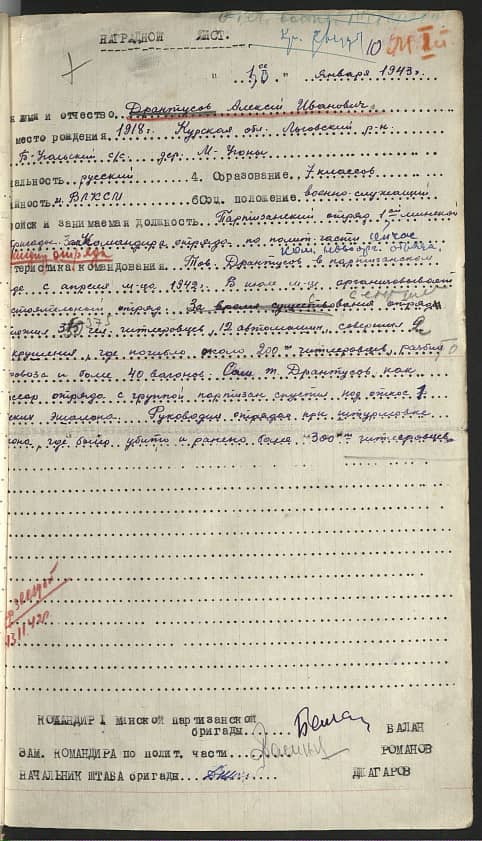 НАГРАДНОЙ ЛИСТ.
10
" 1/II " января 1943 г.
имя и отчество Дрантусов Алексей Иванович
место рождения 1918г. Курская обл. Льговский р-н
с/с. дер.
альность русский 4. Образование 7 классов
йность ч. ВЛКСМ 6 Соц. положение военно-служащий
ойск и занимаемая должность Партизанский отряд 1ой минской
бригады. Зам. Командира отряда по полит. части сейчас
ком. отряда
теристика командования. Тов. Драntусов в партизанском
де с апреля м-ца 1942г. В июле м-ц организовывает
стоятельный отряд. За время существования отряд
чел. гитлеровцев, 12 автомашин, совершил
крушения, где погибло около 200 гитлеровцев, разбил
овоза и более 40 вагонов. Сам т. Драnтусов как
сар отряда с группой партизан спустил под откос 1
эшелона. Руководил отрядом при штурмовке
она, где было убито и ранено более "300" гитлеровцев
звездой
13.11.42г.
КОМАНДИР 1 минской партизанской
бригады БАЛАН
ЗАМ. КОМАНДИРА по полит. части РОМАНОВ
НАЧАЛЬНИК ШТАБА бригады ДЖАГАРОВ